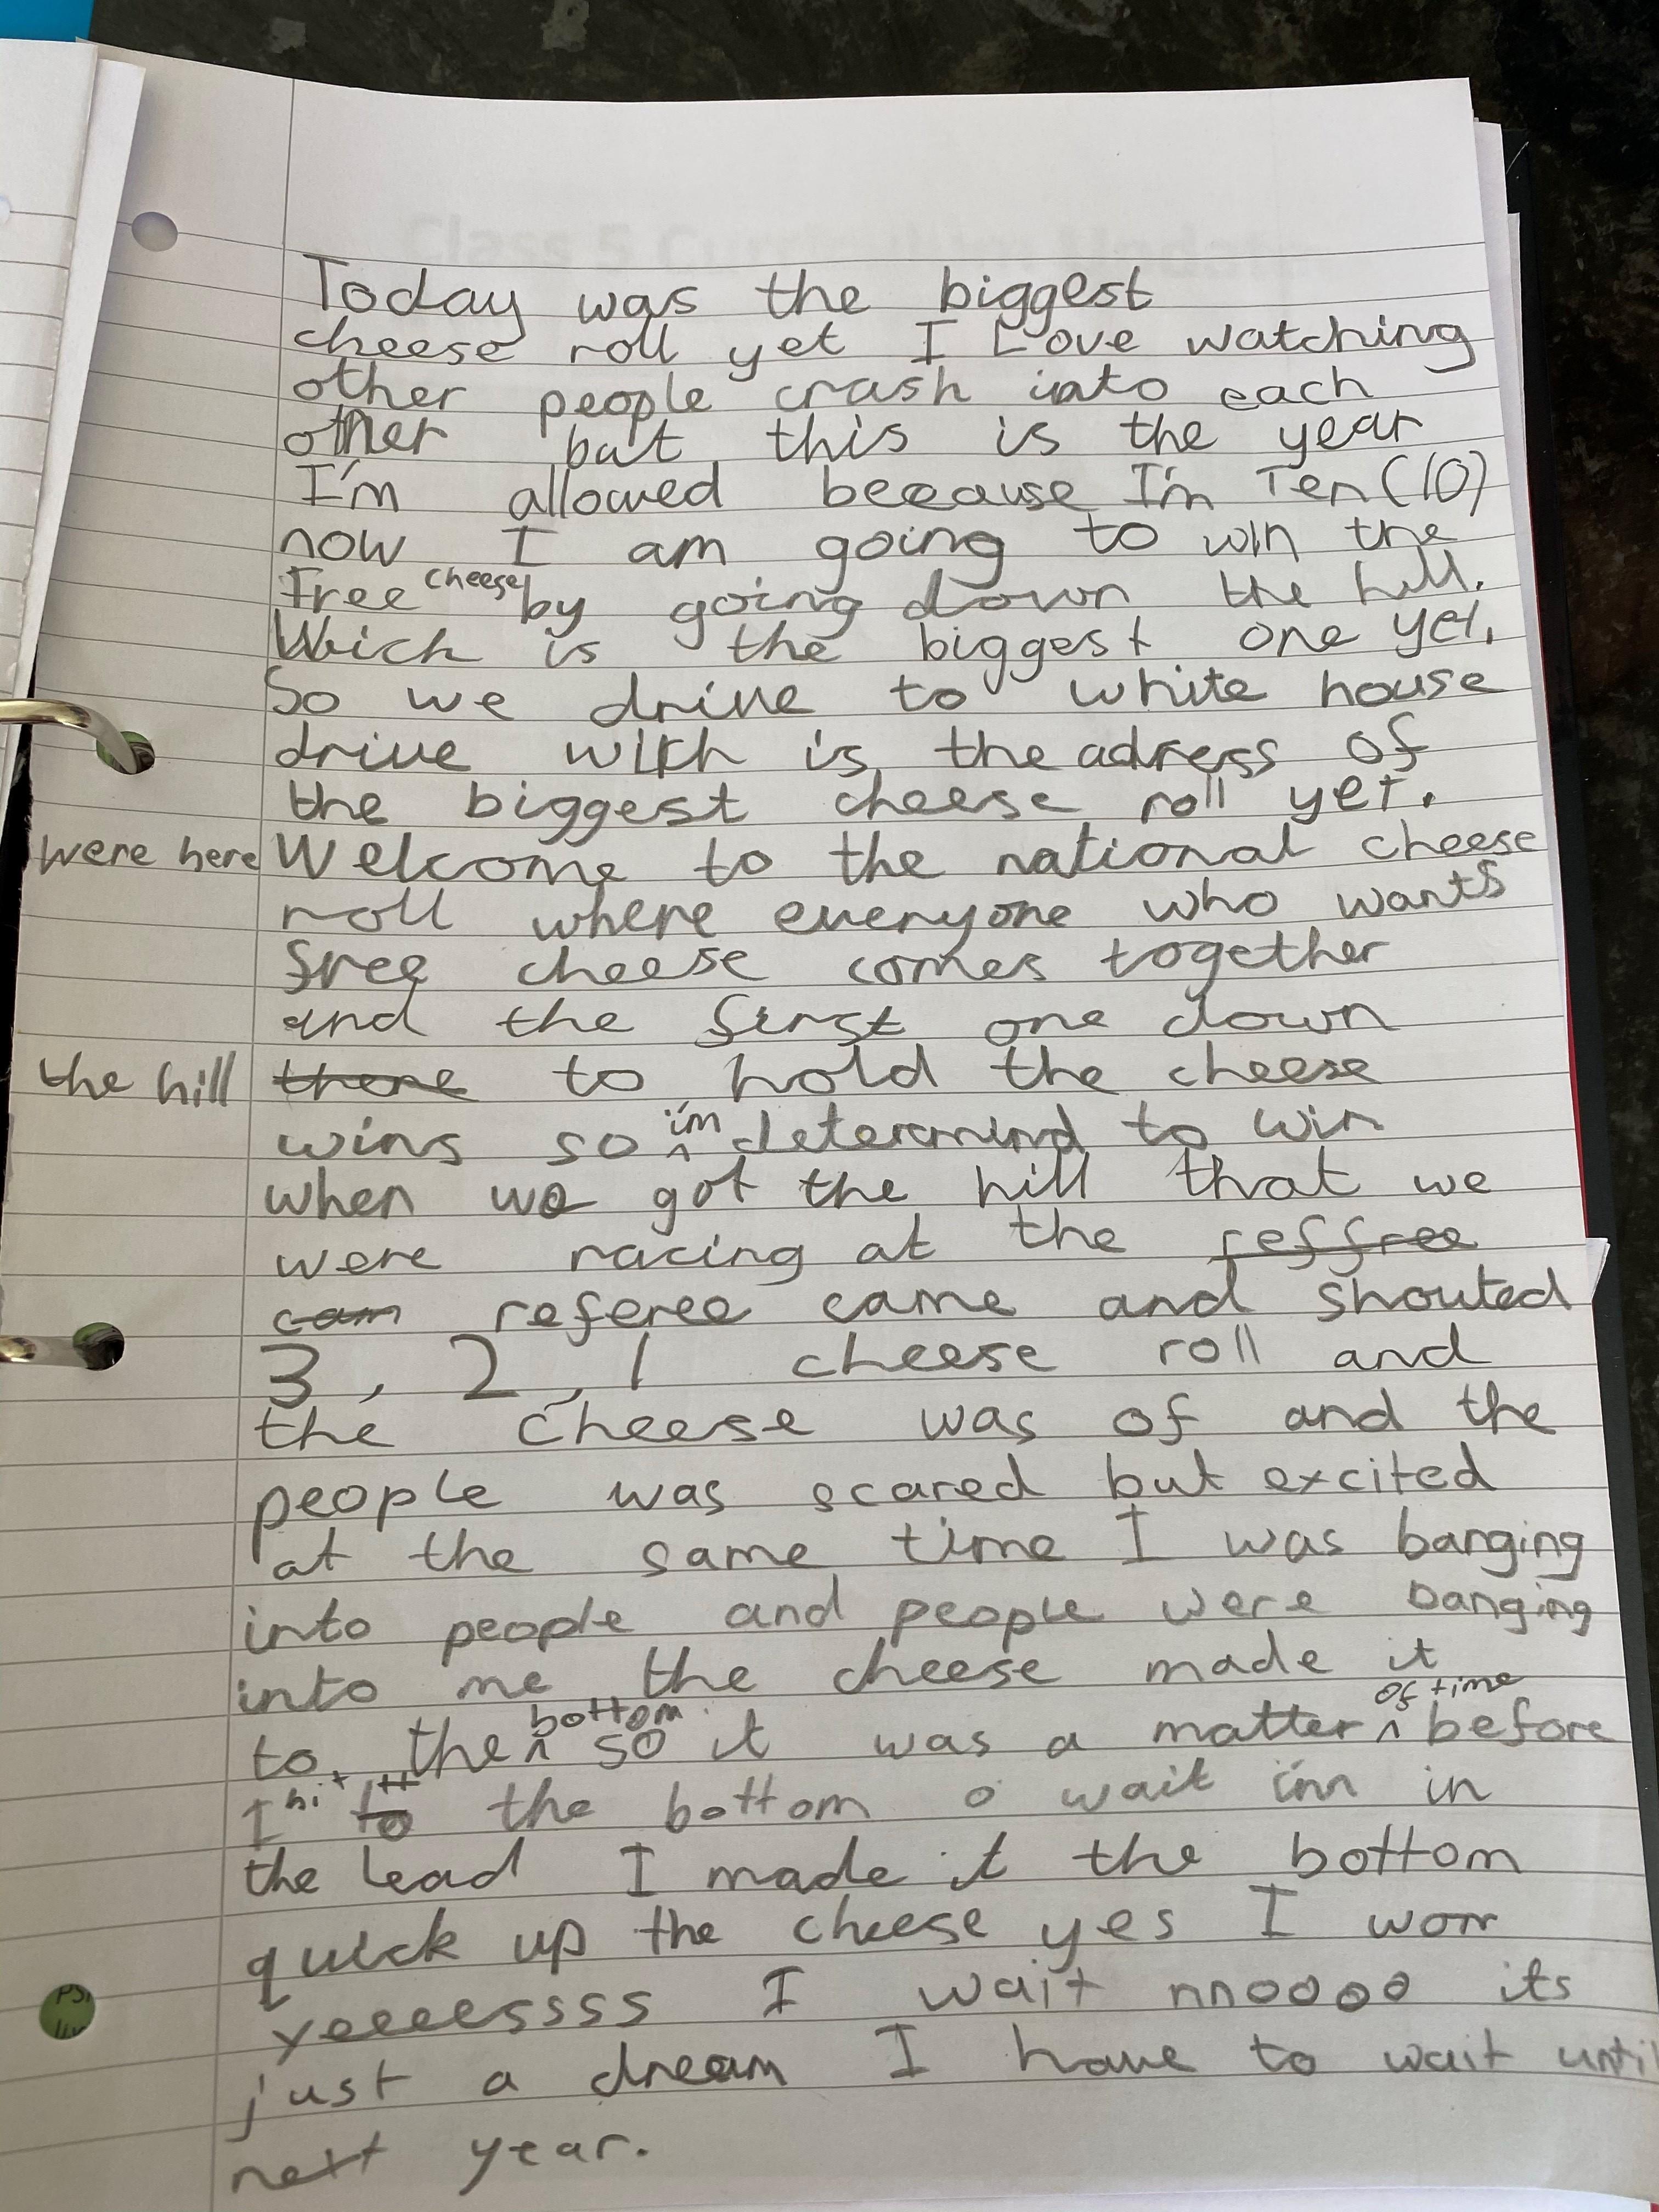 Today was the biggest
cheese roll yet I Love watching
other people crash into each
other but this is the year
I'm allowed because I'm Ten (10)
now I am going to win the
Free cheese by going down the hill.
Which is the biggest one yet.
So we drive to white house
drive witch is the adress of
the biggest cheese roll yet.
were here Welcome to the national cheese
roll where everyone who wants
free cheese comes together
and the first one down
the hill there to hold the cheese
wins so i'm determind to win
when we got the hill that we
were racing at the reffree
cam referee came and shouted
3, 2, 1 cheese roll and
the cheese was of and the
people was scared but excited
at the same time I was banging
into people and people were banging
into me the cheese made it
to the bottom so it was a matter of time before
I hit to the bottom o wait i'm in
the lead I made it the bottom
quick up the cheese yes I won
yeeeessss I wait nnoooo its
just a dream I have to wait until
next year.